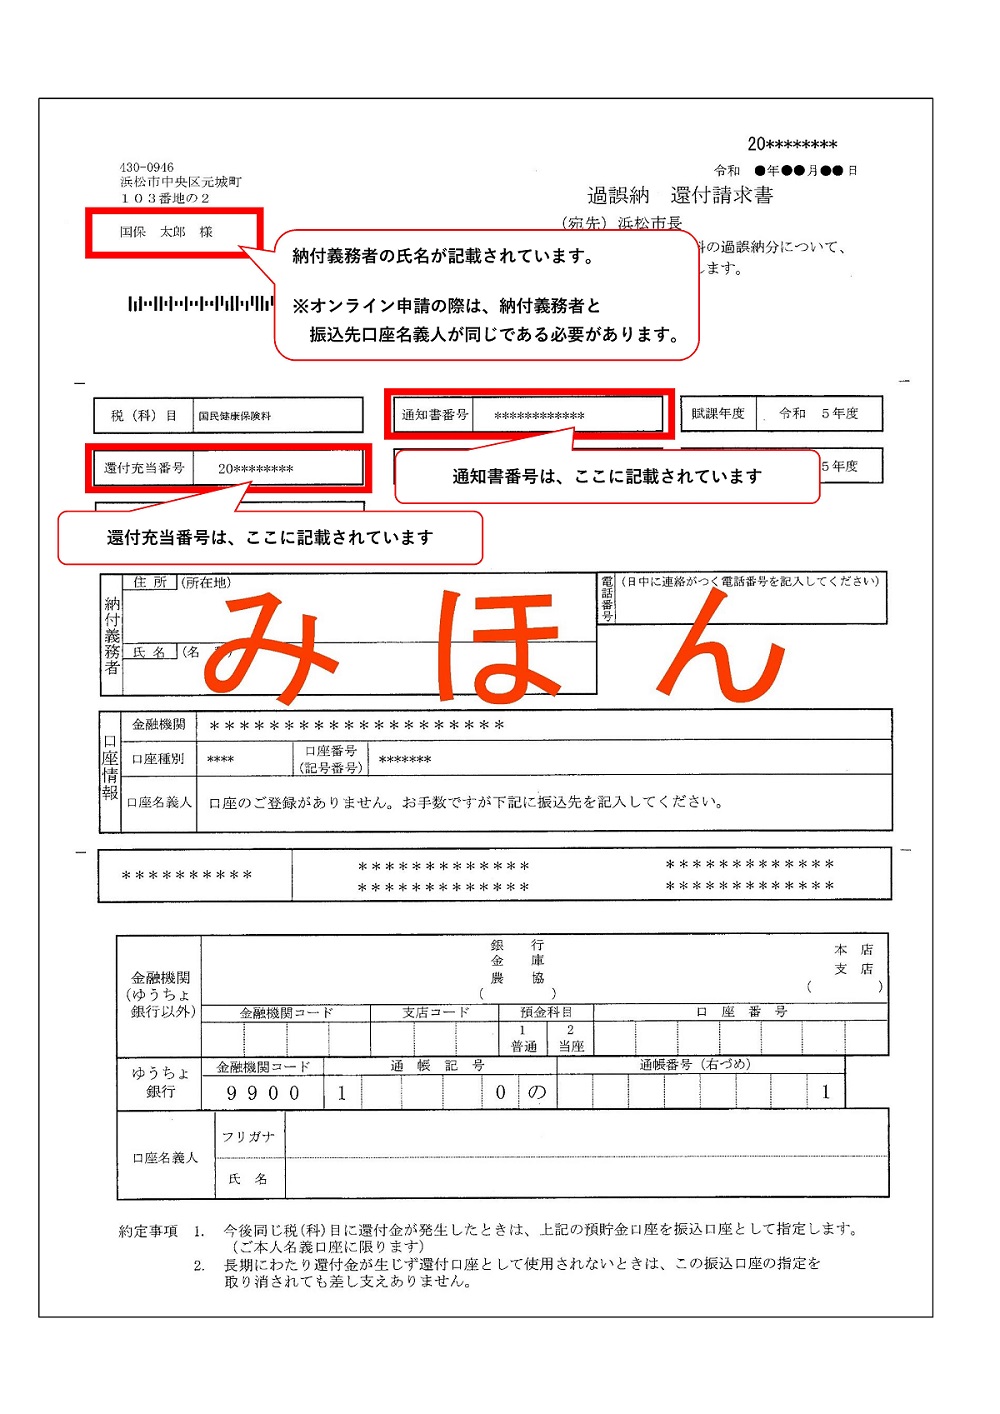 20********
430-0946
浜松市中央区元城町
１０３番地の２
令和 ●年●●月●●日
過誤納 還付請求書
(宛先) 浜松市長
国保 太郎 様
料の過誤納分について、
します。
納付義務者の氏名が記載されています。
※オンライン申請の際は、納付義務者と
振込先口座名義人が同じである必要があります。
税（科）目 国民健康保険料
通知書番号 ************
賦課年度 令和 5年度
還付充当番号 20********
5年度
通知書番号は、ここに記載されています
還付充当番号は、ここに記載されています
納付義務者
住 所 (所在地)
氏 名 (名
電話番号 (日中に連絡がつく電話番号を記入してください)
みほん
口座情報
金融機関 ********************
口座種別 **** 口座番号 (記号番号) *******
口座名義人 口座のご登録がありません。お手数ですが下記に振込先を記入してください。
********** ************* *************
************* *************
金融機関
(ゆうちょ
銀行以外)
銀 行
金 庫
農 協
( )
本 店
支 店
( )
金融機関コード 支店コード 預金科目 口 座 番 号
1 2
普通 当座
ゆうちょ
銀行
金融機関コード 通 帳 記 号 通帳番号 (右づめ)
9 9 0 0 1 0 の 1
口座名義人
フリガナ
氏 名
約定事項 1. 今後同じ税(科)目に還付金が発生したときは、上記の預貯金口座を振込口座として指定します。
（ご本人名義口座に限ります）
2. 長期にわたり還付金が生じず還付口座として使用されないときは、この振込口座の指定を
取り消されても差し支えありません。